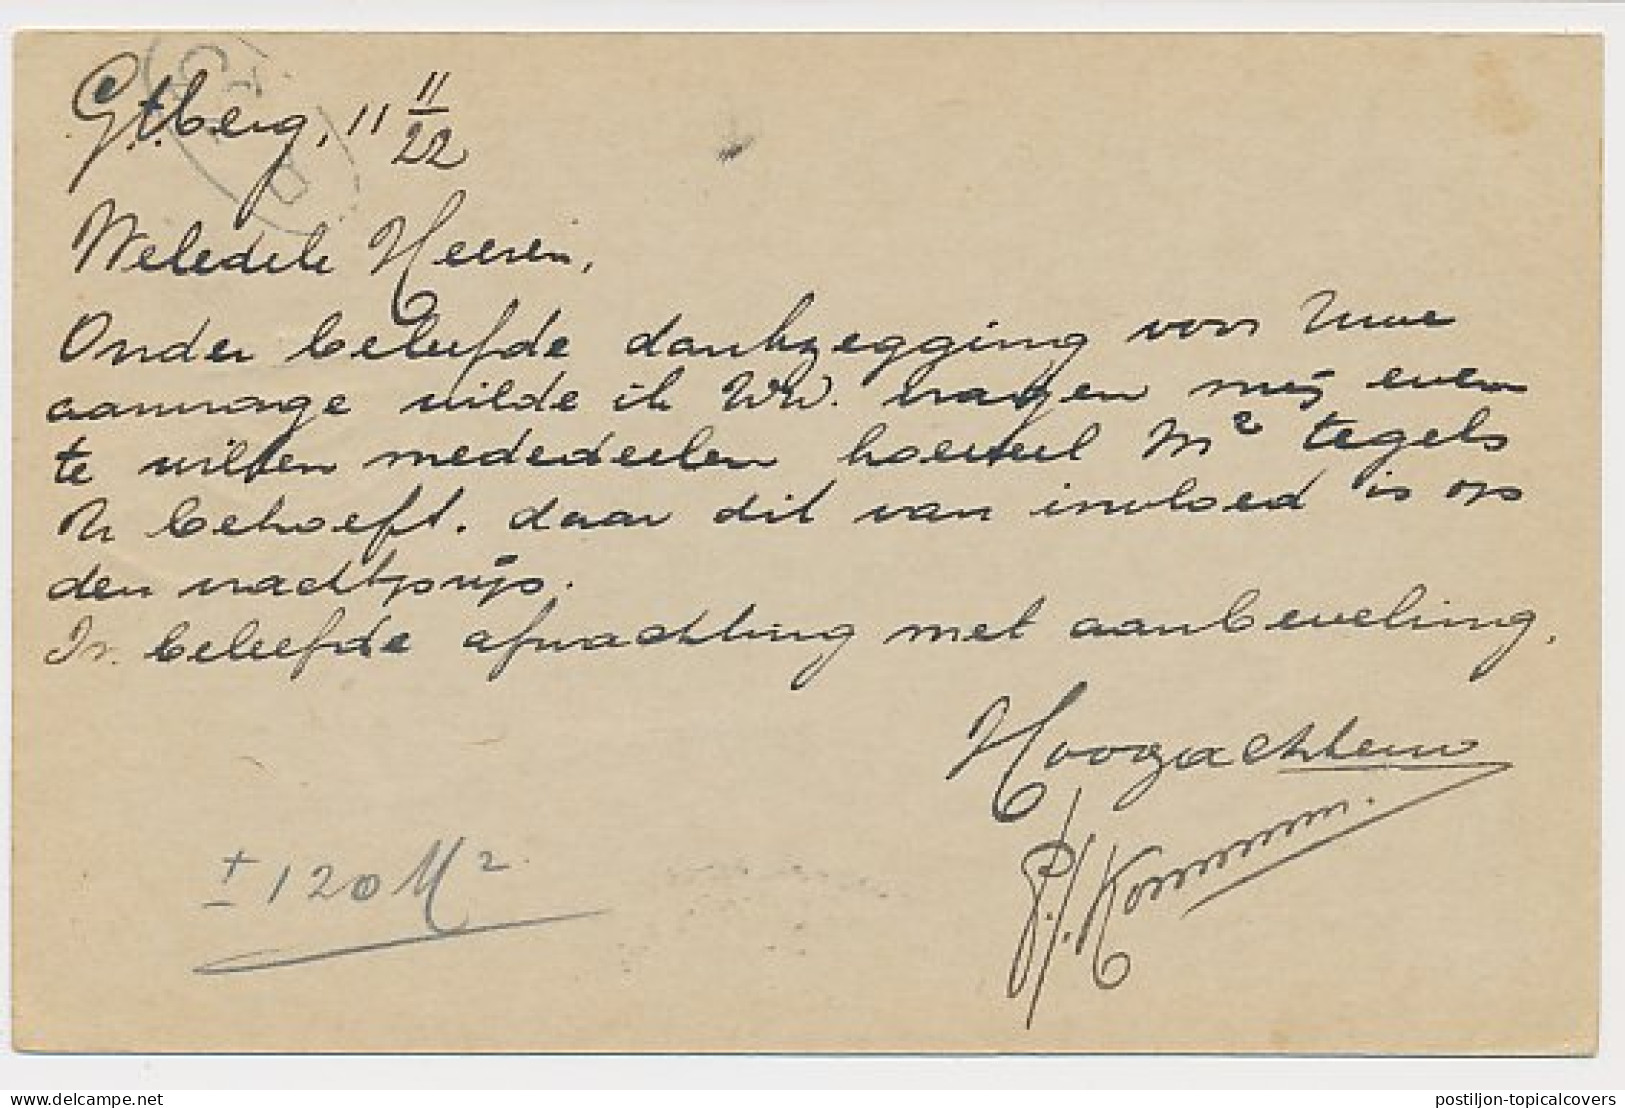 G.t.berg, 11 11/22
Weledele Heeren,
Onder beleefde dankzegging voor Uwe
aanvrage wilde ik WW. vragen mij even
te willen mededeelen hoeveel M² tegels
U behoeft. daar dit van invloed is op
den vrachtprijs.
In beleefde afwachting met aanbeveling,
Hoogachtend
P. J. Komm
± 120 M²
delcampe.net
postiljon-topicalcovers